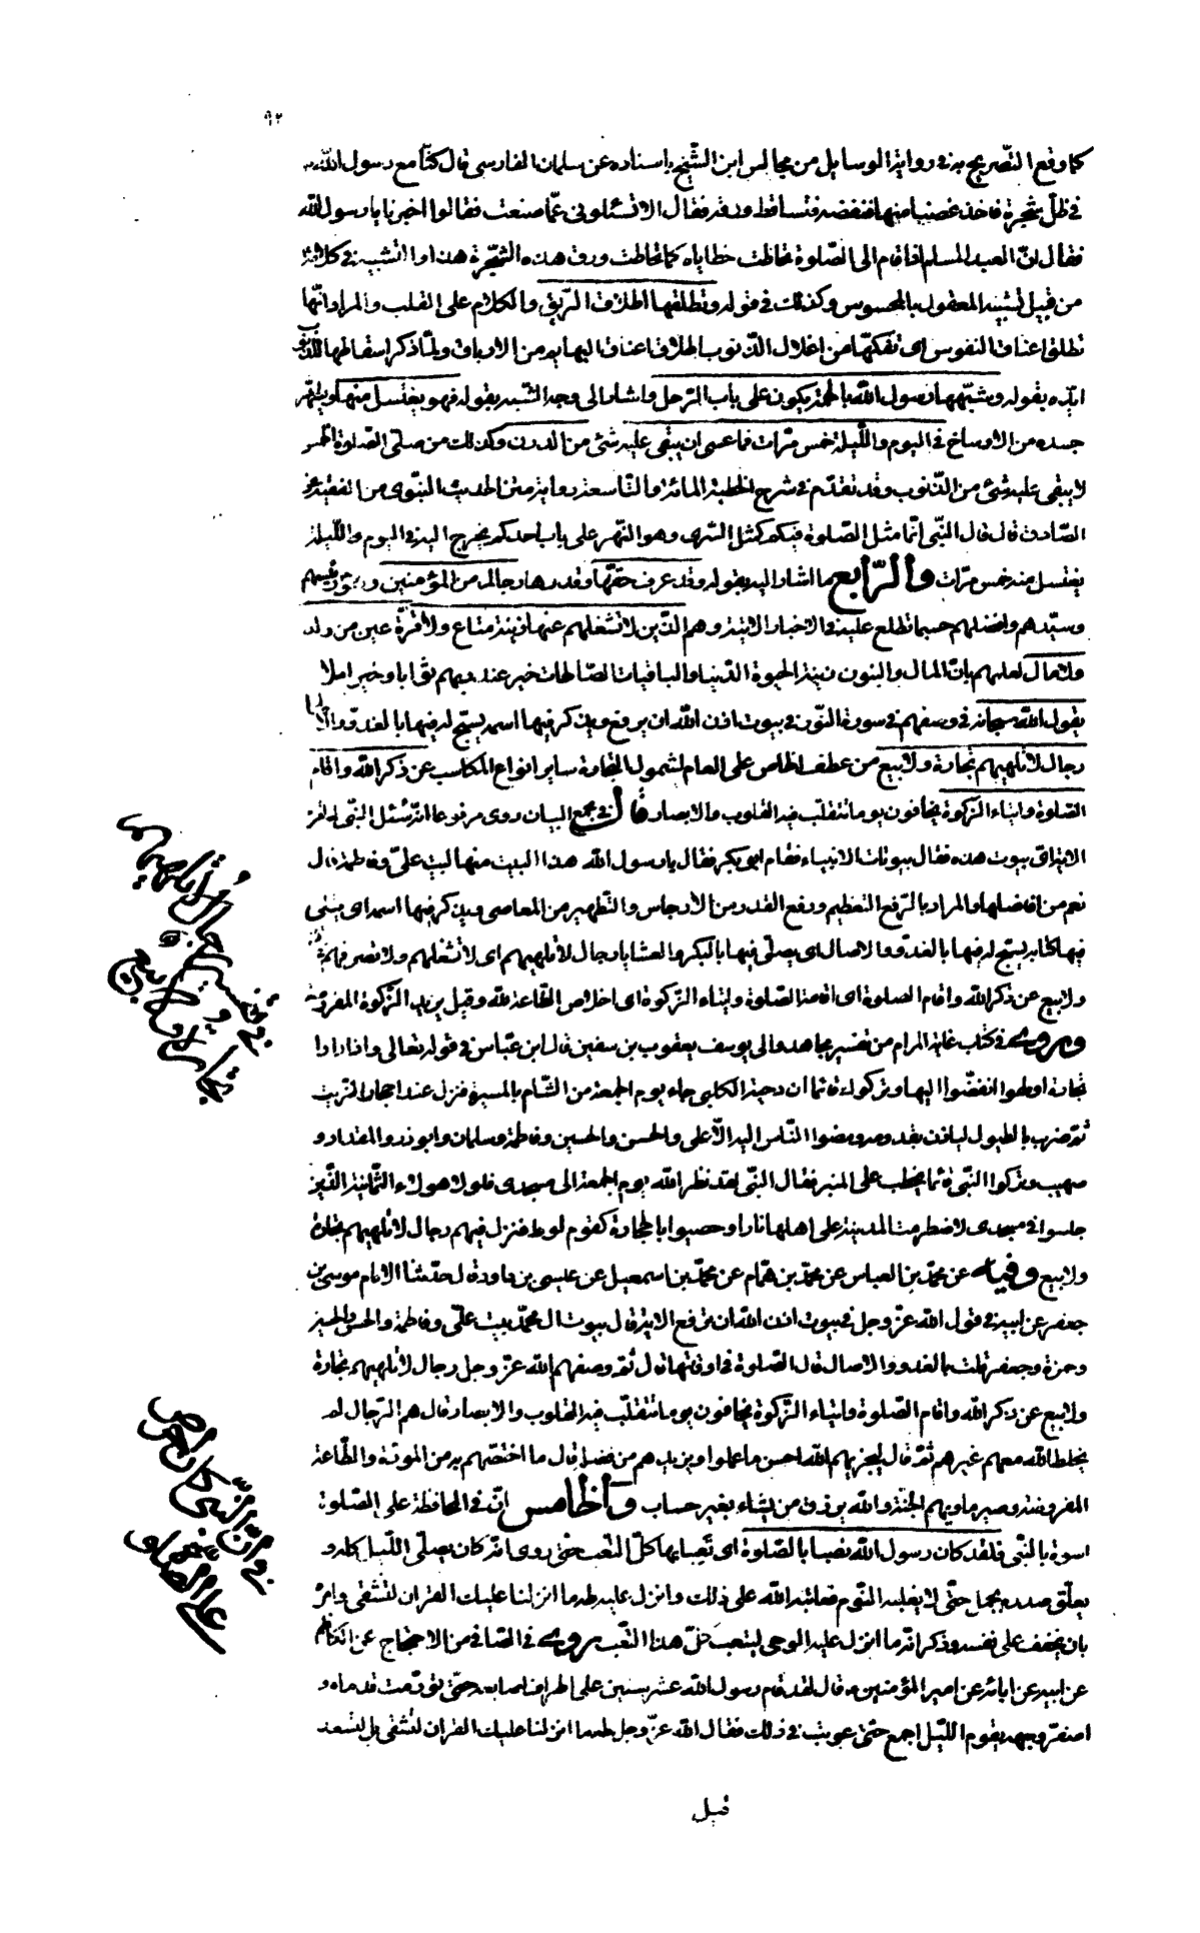 ٩٢
كما وقع التّصريح به فى رواية الوسايل من مجالس ابن الشّيخ باسناده عن سلمان الفارسى قال كنّا مع رسول اللّه
فى ظلّ شجرة فاخذ غصنا منها فنفضه فتساقط ورقه فقال الا تسئلونى عمّا صنعت فقالوا اخبرنا يا رسول اللّه
فقال انّ العبد المسلم اذا قام الى الصّلوة تحاطّت خطاياه كما تحاطّت ورق هذه الشّجرة هذا و التشبيه فى كلامه
من قبيل تشبيه المعقول بالمحسوس وكذلك فى قوله وتطلقها اطلاق الرّبق والكلام على القلب والمراد انّها
تطلق اعناق النفوس اى تفكّها من اغلال الذّنوب اطلاق اعناق البهايم من الارباق ولمّا ذكر اسقاطها للذّنوب
ايّده بقوله وشبّهها رسول اللّه بالحمّة يكون على باب الرّجل واشار الى وجه الشّبه بقوله فهو يغتسل منها ويطهّر
جسده من الاوساخ فى اليوم واللّيلة خمس مرّات فما عسى ان يبقى عليه شئ من الدرن وكذلك من صلّى الصّلوة الخمس
لا يبقى عليه شئ من الذّنوب وقد تقدّم فى شرح الخطبة المائة والتّاسعة رواية متن الحديث النبّوى من الفقيه عن
الصّادق قال قال النّبى انّما مثل الصّلوة فيكم كمثل السّرى وهو النّهر على باب احدكم يخرج اليه فى اليوم واللّيلة
يغتسل منه خمس مرّات والرّابع ما اشار اليه بقوله وقد عرف حقّها وقدرها رجال من المؤمنين
وسيّدهم وافضلهم حسبما تطلع عليه فى الاخبار الاتية وهم الّذين لا تشغلهم عنها زينة متاع ولا قرّة عين من ولد
ولا مال لعلمهم بانّ المال والبنون زينة الحيوة الدّنيا والباقيات الصّالحات خير عند ربّهم ثوابا وخير املا
يقول اللّه سبحانه فى وصفهم فى سورة النّور فى بيوت اذن اللّه ان يرفع ويذكر فيها اسمه يسبّح له فيها بالغدوّ والآصال
رجال لا تلهيهم تجارة ولا بيع من عطف الخاص على العام لشمول التجارة ساير انواع المكاسب عن ذكر اللّه واقام
الصّلوة وايتاء الزّكوة يخافون يوما تتقلّب فيه القلوب والابصار قال فى مجمع البيان روى مرفوعا انّه سئل النّبى لما قرء
الاية اىّ بيوت هذه فقال بيوتات الانبياء فقام ابو بكر فقال يا رسول اللّه هذا البيت منها لبيت علىّ وفاطمة قال
نعم من افاضلها والمراد بالرّفع التعظيم ورفع القدر من الارجاس والتّطهير من المعاصى ويذكر فيها اسمه اى يتلى
فيها كتابه يسبّح له فيها بالغدوّ والاصال اى يصلّى فيها بالبكر والعشايا رجال لا تلهيهم اى لا تشغلهم ولا تصرفهم تجارة
ولا بيع عن ذكر اللّه واقام الصلوة اى اقامة الصّلوة وايتاء الزّكوة اى اخلاص الطّاعة للّه وقيل يريد الزّكوة المفروضة
وروى فى كتاب غاية المرام من تفسير مجاهد وابى يوسف يعقوب بن سفين قال ابن عبّاس فى قوله تعالى واذا راوا
تجارة او لهوا انفضّوا اليها وتركوك قائما ان دحية الكلبى جاء يوم الجمعة من الشّام بالمسيرة فنزل عند احجار الزّيت
ثم ضرب بالطبول ليأذن بقدومه ومضوا النّاس اليه الّا على والحسن والحسين وفاطمة وسلمان وابوذر والمقداد و
صهيب وتركوا النّبى قائما يخطب على المنبر فقال النّبى لقد نظر اللّه يوم الجمعة الى مسجدى فلولا هولاء الثّمانية الّذين
جلسوا فى مسجدى لاضطرمت المدينة على اهلها نارا وحصبوا بالحجارة كقوم لوط فنزل فيهم رجال لا تلهيهم تجارة
ولا بيع وفيه عن محمّد بن العباس عن محمّد بن همّام عن محمّد بن اسمعيل عن عيسى بن داود قال حدّثنا الامام موسى بن
جعفر عن ابيه فى قول اللّه عزّ وجل فى بيوت اذن اللّه ان ترفع الاية قال بيوت ال محمّد بيت علىّ وفاطمة والحسن والحسين
وحمزة وجعفر قلت بالغدوّ والاصال قال الصّلوة فى اوقاتها قال ثم وصفهم اللّه عزّ وجل رجال لا تلهيهم تجارة
ولا بيع عن ذكر اللّه واقام الصّلوة وايتاء الزّكوة يخافون يوما تتقلّب فيه القلوب والابصار قال هم الرّجال لم
يخلط اللّه معهم غيرهم ثم قال ليجزيهم اللّه احسن ما عملوا ويزيدهم من فضله قال ما اختصّهم به من المودّة والطّاعة
المفروضة وصير ماويهم الجنّة واللّه يرزق من يشاء بغير حساب والخامس انّ فى المحافظة على الصّلوة
اسوة بالنبّى فلقد كان رسول اللّه نصبا بالصّلوة اى تعبا بها كلّ التعب حتّى روى انّه كان يصلّى اللّيل كلّه و
يعلّق صدره بحبل حتّى لا يغلبه النّوم فعاتبه اللّه على ذلك وانزل عليه طه ما انزلنا عليك القران لتشقى وامره
بان يخفف على نفسه وذكر انّه ما انزل عليه الوحى ليتعب كلّ هذا التّعب روى فى الصّافى من الاحتجاج عن الكاظم
عن ابيه عن ابائه عن امير المؤمنين قال لقد قام رسول اللّه عشر سنين على اطراف اصابعه حتّى تورّمت قدماه و
اصفرّ وجهه يقوم اللّيل اجمع حتّى عوتب فى ذلك فقال اللّه عزّ وجل طه ما انزلنا عليك القران لتشقى بل لتسعد
فى تفسير رجال لا تلهيهم
تجارة ولا بيع
فى انّ النبّى كان احرص
على الصلوة
قبل